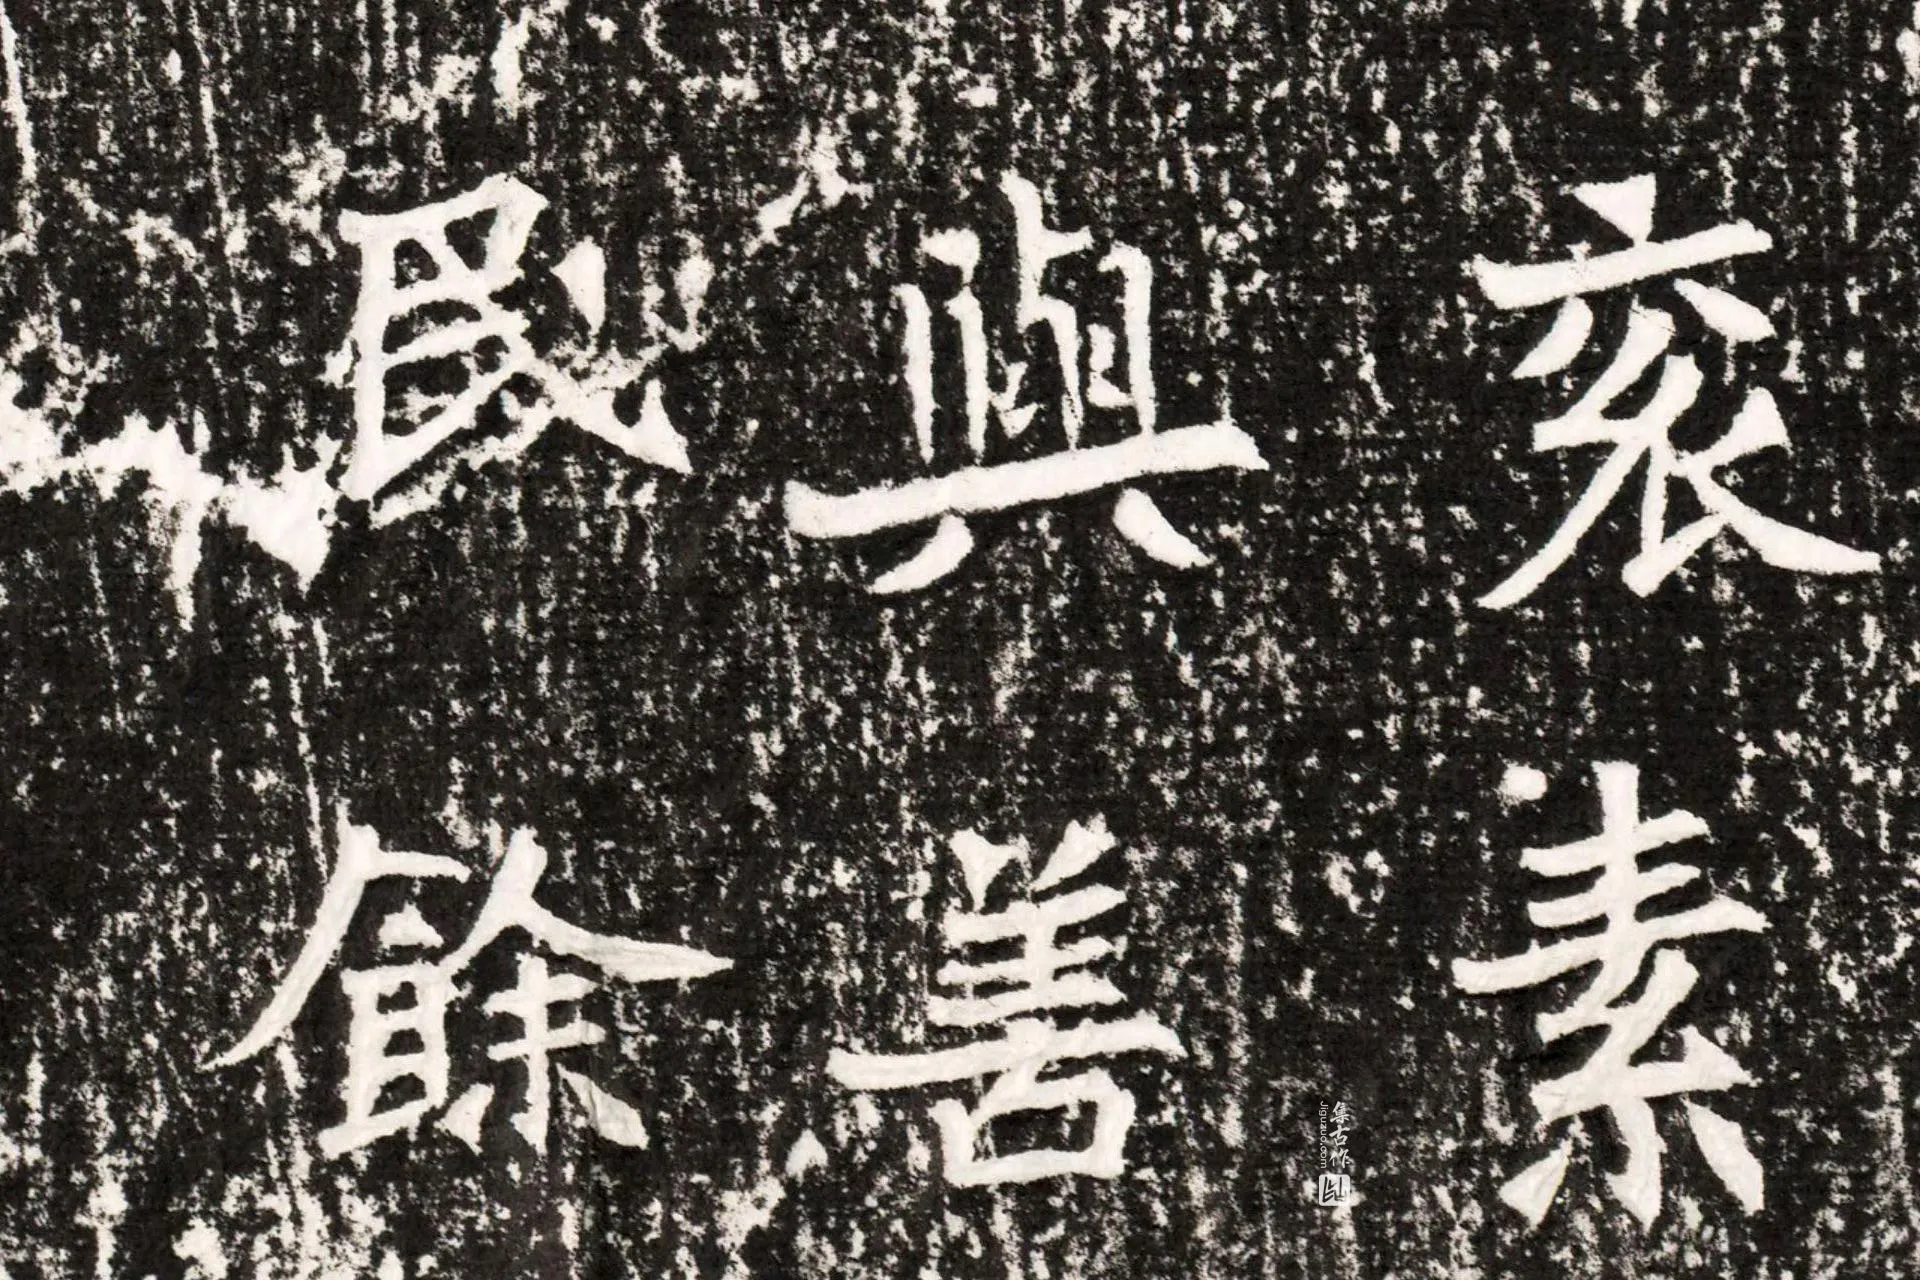 衮素
與善
餘
集古作
Jiguzuo.com